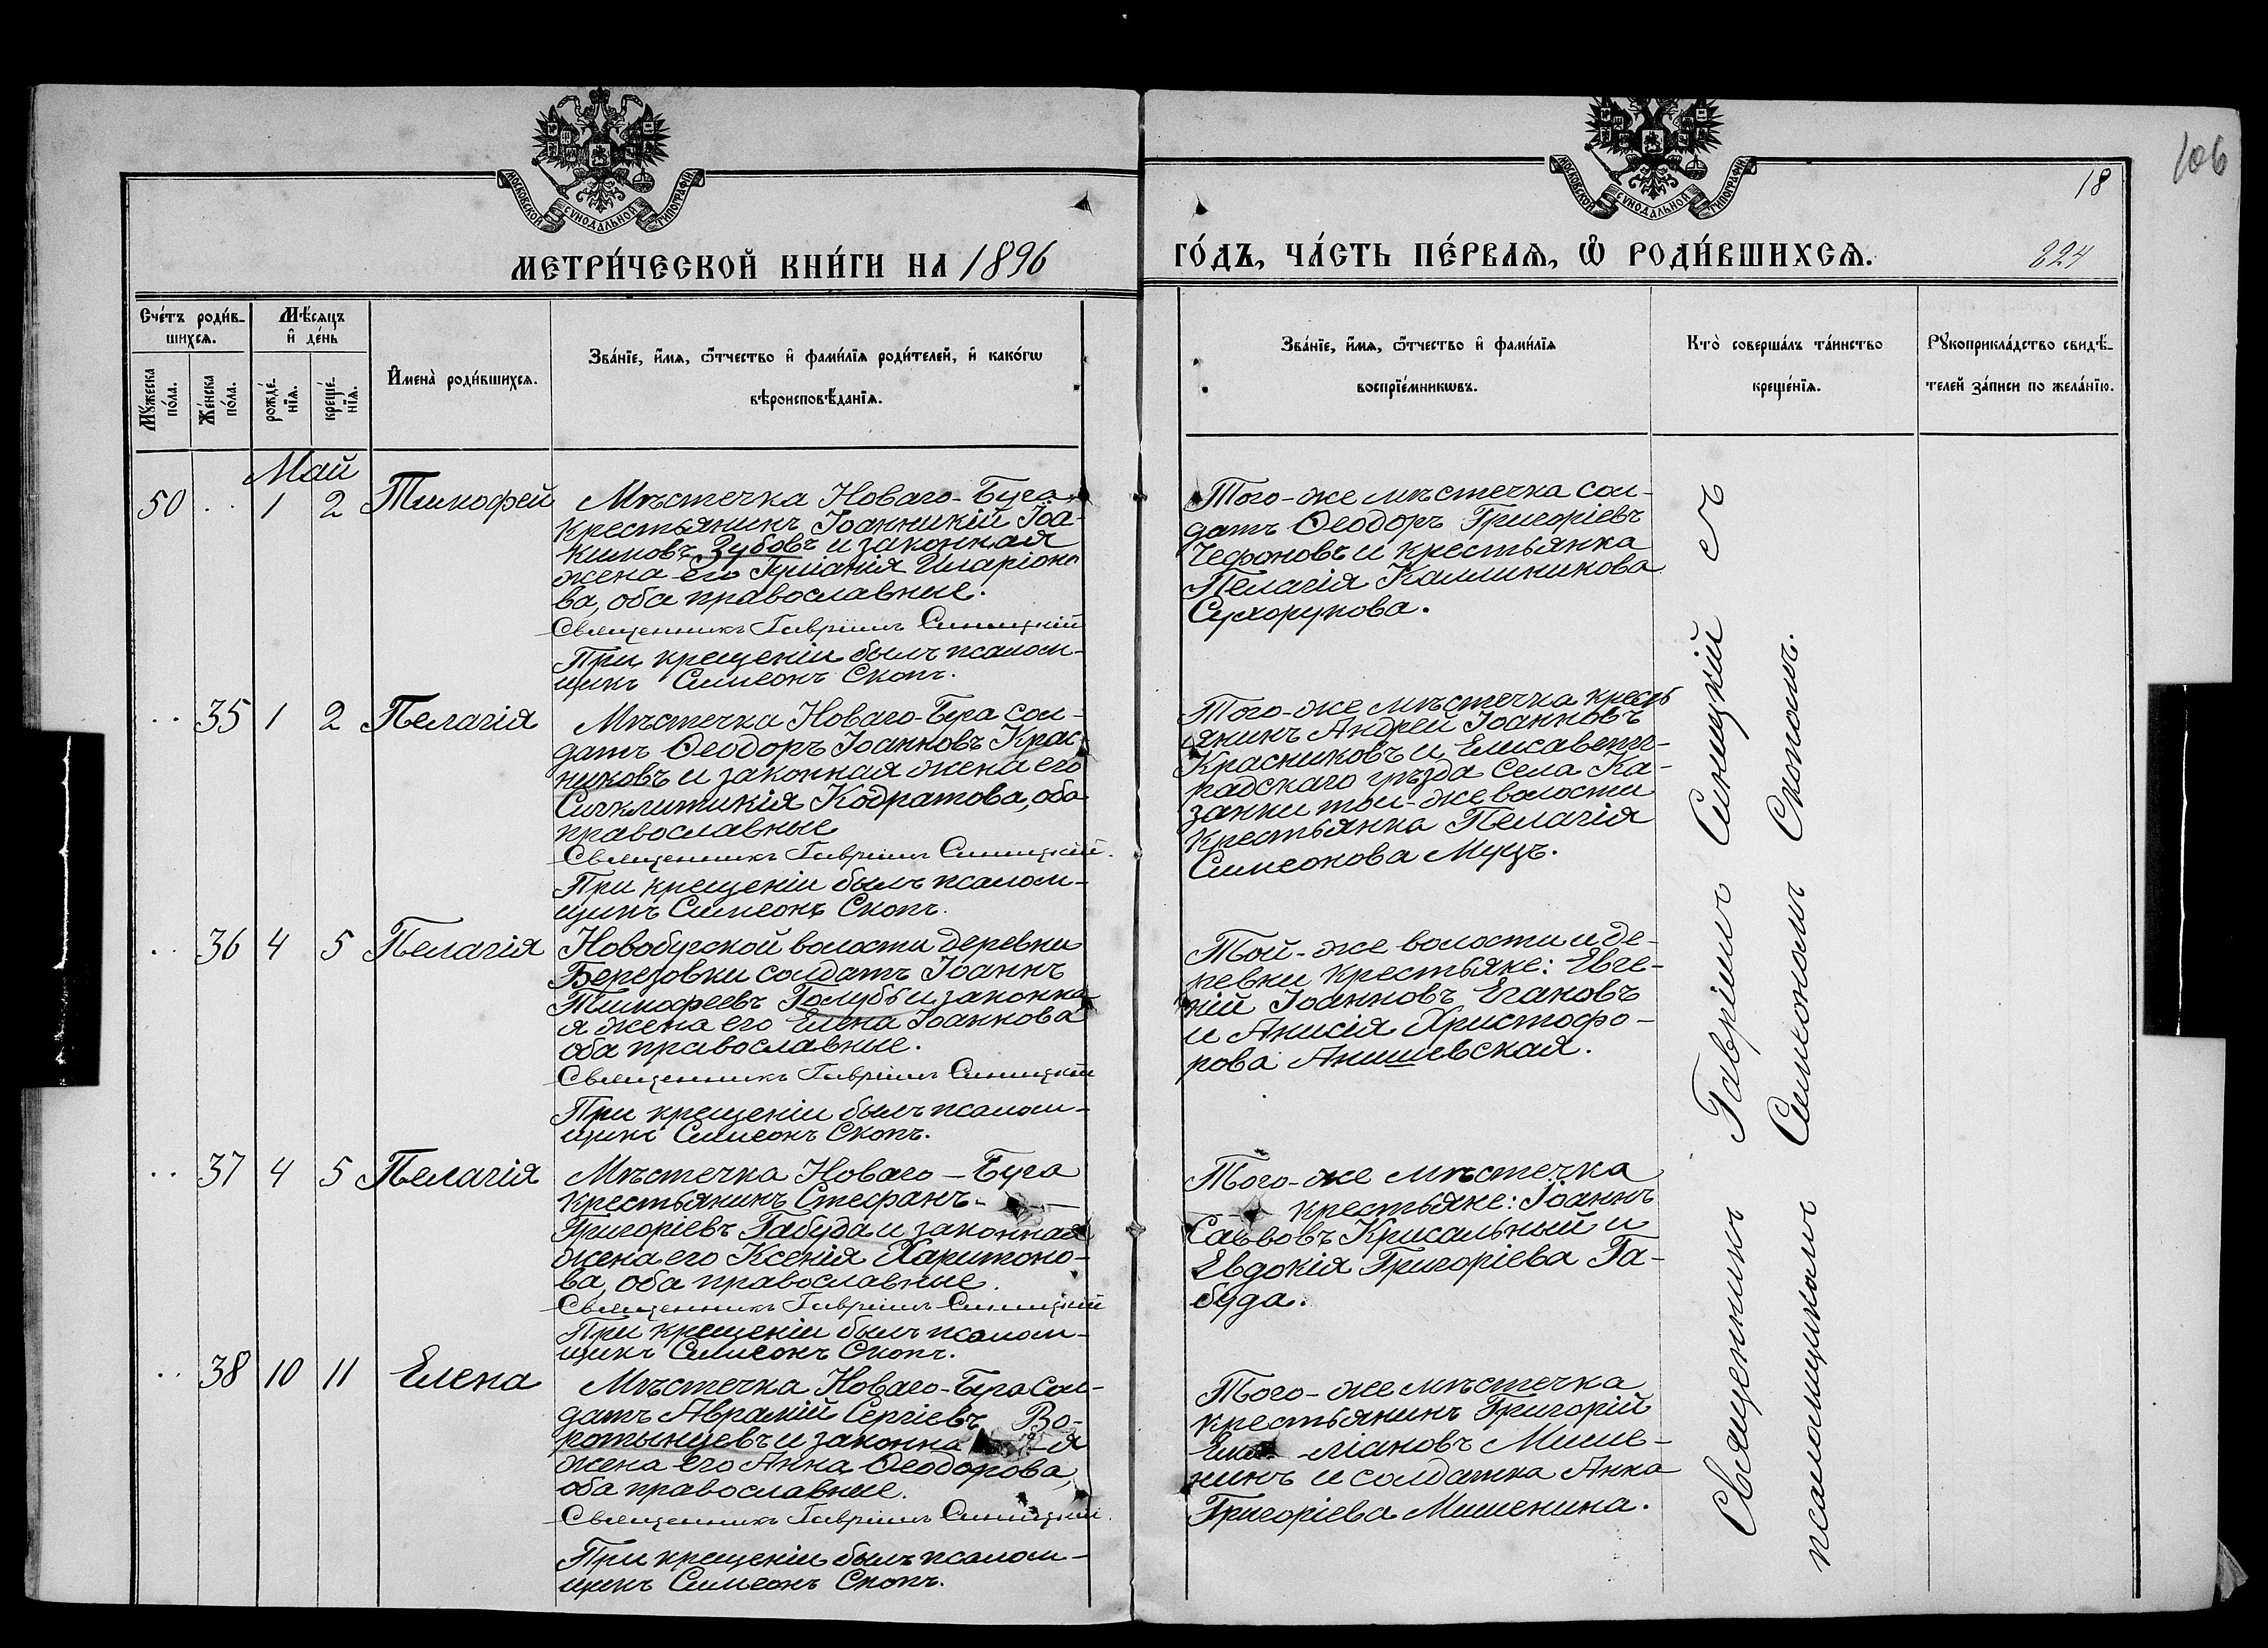 106
18
МОСКОВСКОЙ СѴНОДАЛЬНОЙ ТИПОГРАФІИ
МОСКОВСКОЙ СѴНОДАЛЬНОЙ ТИПОГРАФІИ
МЕТРИ́ЧЕСКОЙ КНИ́ГИ НА 1896
ГО́ДЪ, ЧА́СТЬ ПЕ́РВАѦ, Ѡ҃ РОДИ́ВШИХСѦ.
224
Сче́тъ роди́в-
шихсѧ.
Мѣ́сѧцъ
и҆ де́нь
Мꙋ́жеска
по́ла.
Же́нска
по́ла.
рожде́-
нїѧ.
креще́-
нїѧ.
И҆мена̀ роди́вшихсѧ.
Зва́нїе, и҆́мѧ, ѻ҆́тчество и҆ фами́лїѧ роди́телей, и҆ како́гѡ
вѣроисповѣ́данїѧ.
Зва́нїе, и҆́мѧ, ѻ҆́тчество и҆ фами́лїѧ
воспрїе́мникѡвъ.
Кто̀ соверша́лъ та́инство
креще́нїѧ.
Рꙋкоприкла́дство свидѣ́-
телей за́писи по жела́нїю.
Май
50 .. 1 2 Тимофей
Мѣстечка Новаго-Буга
крестьянинъ Іоанникій Іоа-
кимовъ Зубовъ и законная
жена его Иларіоно
ва, оба православные.
Священникъ Гавріилъ Синицкій
При крещеніи былъ псалом-
щикъ Симеонъ Скопъ.
Того-же мѣстечка сол-
датъ Ѳеодоръ Григоріевъ
Чефоновъ и крестьянка
Пелагія Каллиникова
Сухорукова.
.. 35 1 2 Пелагія
Мѣстечка Новаго-Буга сол-
датъ Ѳеодоръ Іоанновъ Крас-
никовъ и законная жена его
Синклитикія Кодратова, оба
православные
Священникъ Гавріилъ Синицкій.
При крещеніи былъ псалом-
щикъ Симеонъ Скопъ.
Того-же мѣстечка кресть
янинъ Андрей Іоанновъ
Красниковъ и Елисаветг-
радскаго уѣзда села Ка-
занки той-же волости
крестьянка Пелагія
Симеонова Муцъ.
.. 36 4 5 Пелагія
Новобугской волости деревни
Березовки солдатъ Іоаннъ
Тимофеевъ Голубь и законна
я жена его Елена Іоаннова
оба православные.
Священникъ Гавріилъ Синицкій
При крещеніи былъ псалом-
щикъ Симеонъ Скопъ.
Той-же волости и де-
ревни крестьяне: Евге-
ній Іоанновъ Егановъ
и Анисія Христофо-
рова Анишевская.
.. 37 4 5 Пелагія
Мѣстечка Новаго-Буга
крестьянинъ Стефанъ-
Григоріевъ Габуда и законная
жена его Ксенія Харитоно-
ва, оба православные.
Священникъ Гавріилъ Синицкій
При крещеніи былъ псалом-
щикъ Симеонъ Скопъ.
Того-же мѣстечка
крестьяне: Іоаннъ
Савовъ Крисальный и
Евдокія Григоріева Га-
буда.
.. 38 10 11 Елена
Мѣстечка Новаго-Буга сол-
датъ Аврамій Сергіевъ Во-
ротынцевъ и законна-я
жена его Анна Ѳеодорова,
оба православные.
Священникъ Гавріилъ Синицкій.
При крещеніи былъ псалом-
щикъ Симеонъ Скопъ.
Того-же мѣстечка
крестьянинъ Григорій
-ліановъ Мише-
нинъ и солдатка Анна
Григоріева Мишенина.
Священникъ Гавріилъ Синицкій съ
псаломщикомъ Симеономъ Скопомъ.